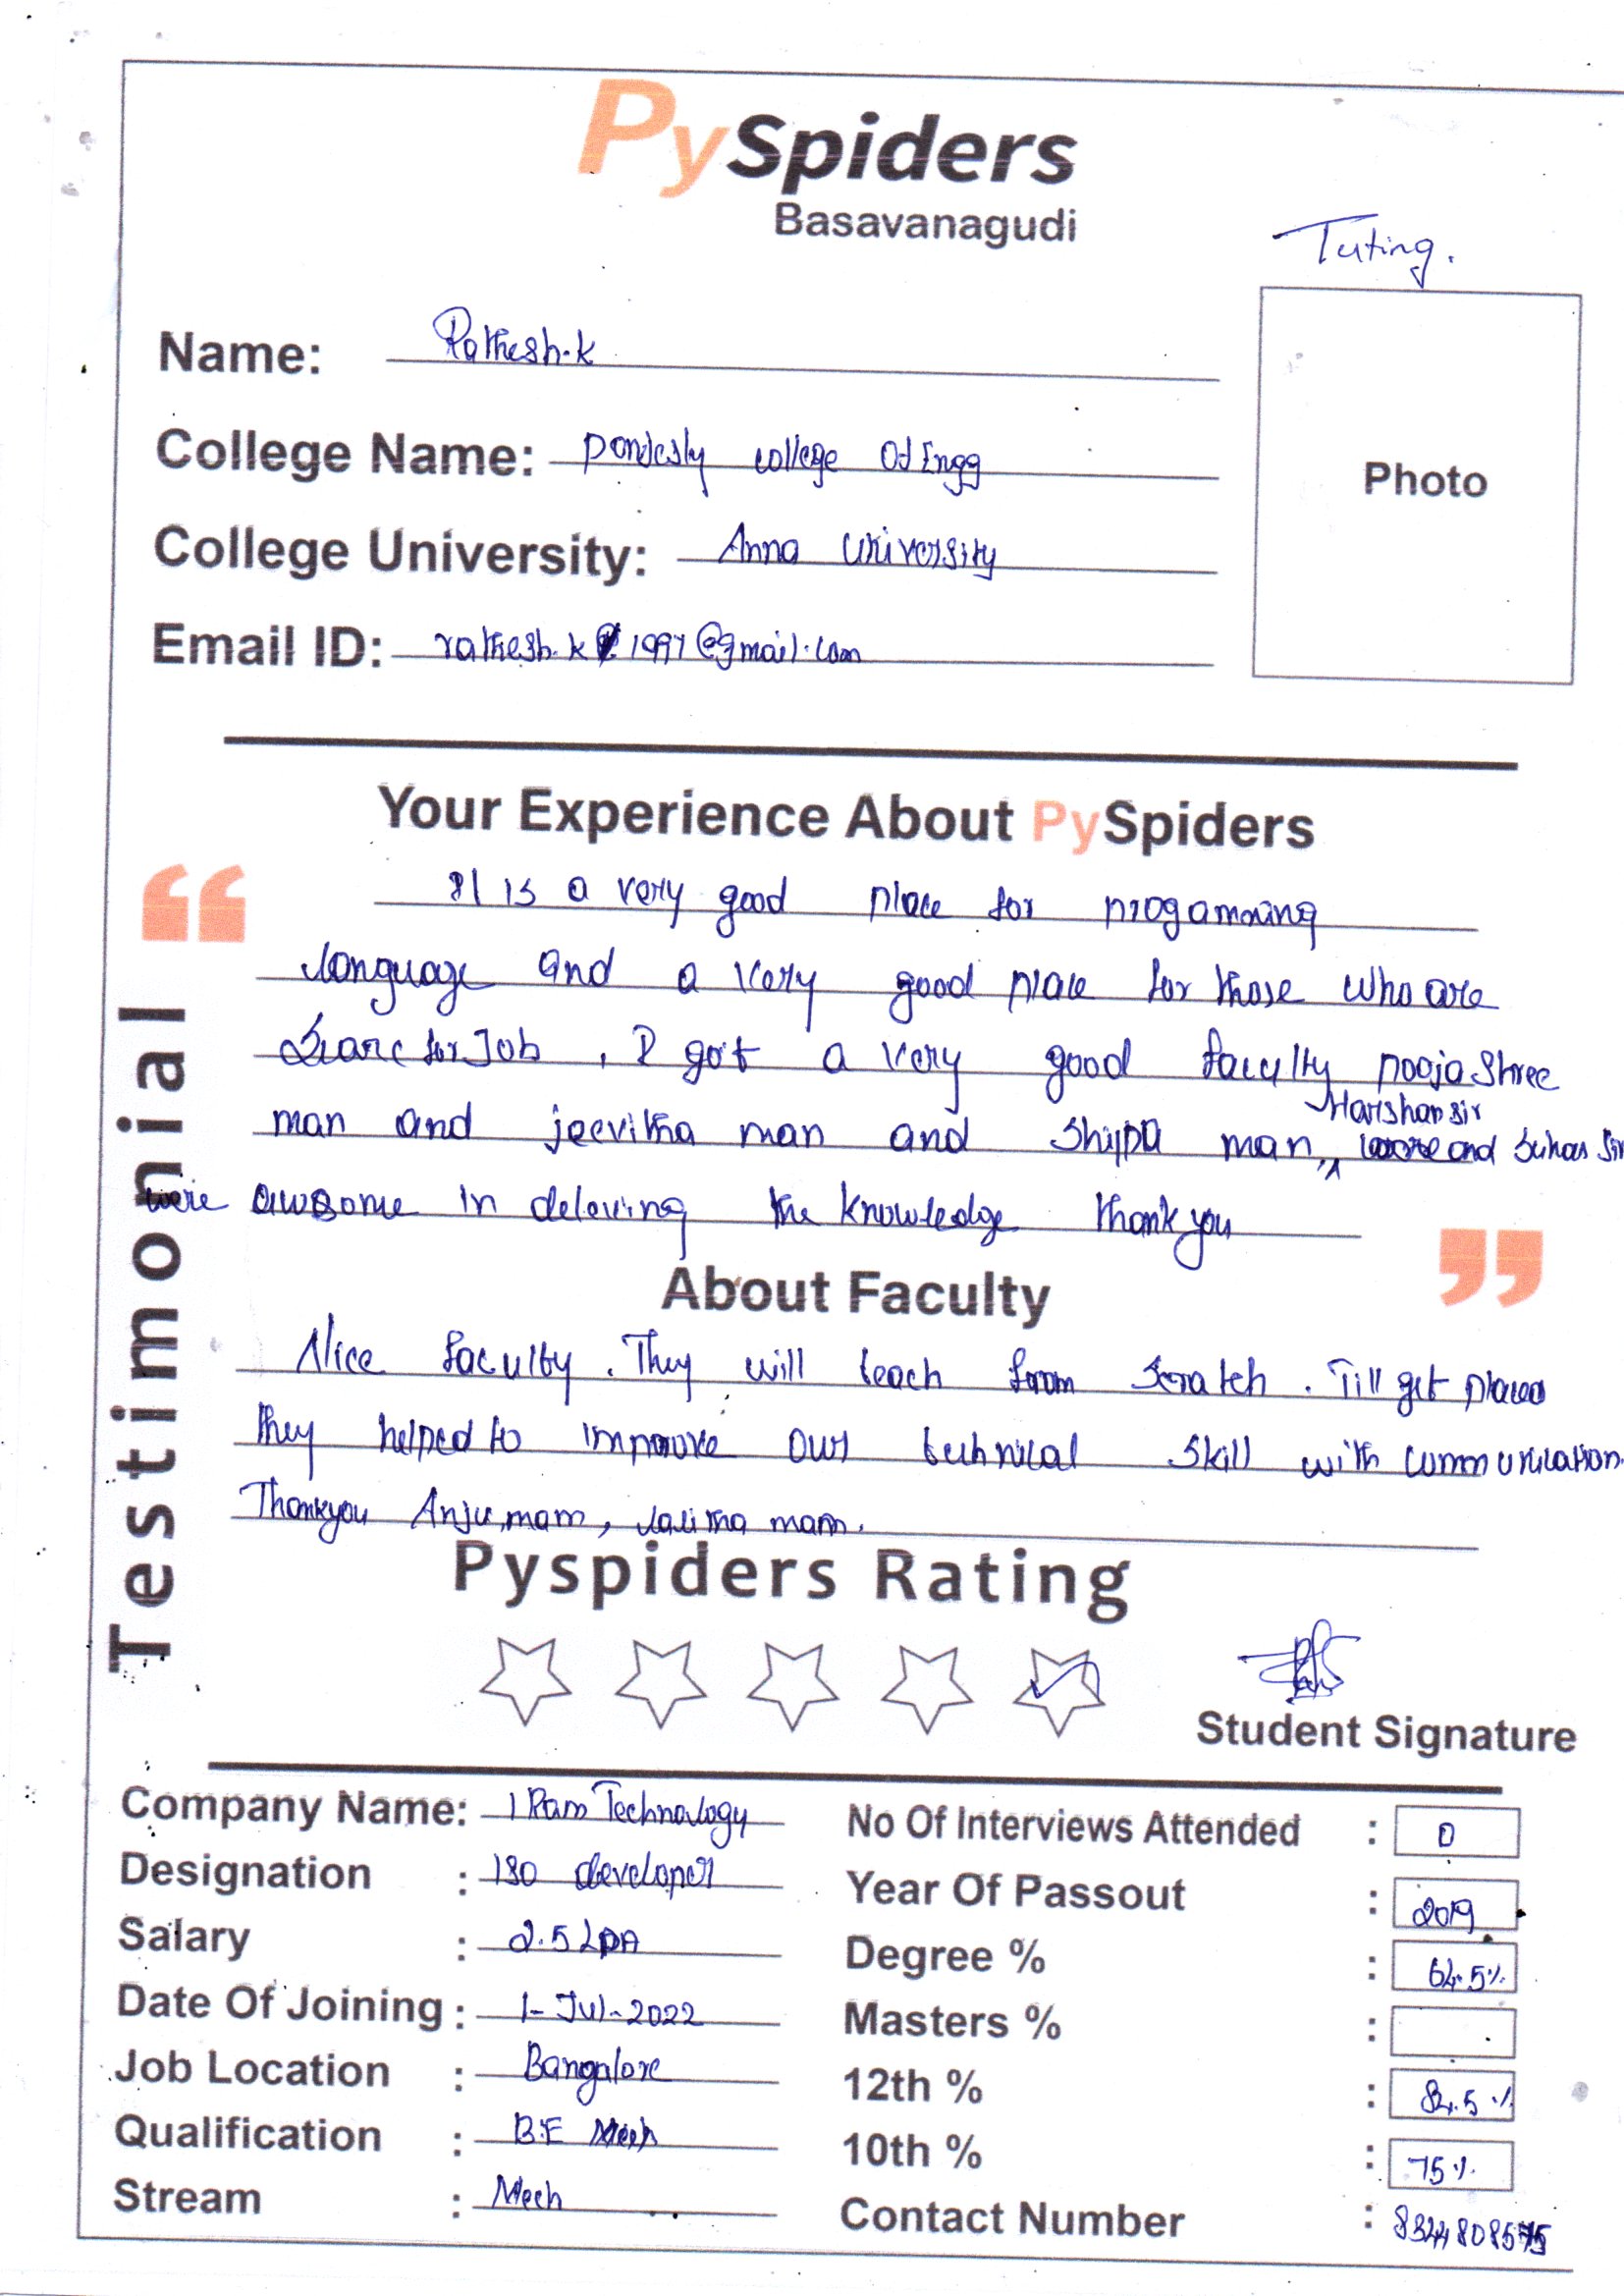 PySpiders
Basavanagudi
Name: Rathesh.k
College Name: college Of Engg
College University: Anna University
Email ID: rathesh.k 1997@gmail.com
Photo
Your Experience About PySpiders
is a very good place for progamming
language and a very good place for those who are
for Job , I got a very good faculty pooja Shree
man and jeevitha man and Shilpa man, Harishan sir and Suhas Sir
were awsome in delevring the knowledge thank you
About Faculty
Nice faculty . They will teach from Scratch . Till get placed
they helped to improve our technical skill with communication.
Thankyou Anju mam, Lalitha mam.
Testimonial
Pyspiders Rating
Student Signature
Company Name: I Ram Technology
Designation : developer
Salary : 2.5 LPA
Date Of Joining : 1-Jul-2022
Job Location : Bangalore
Qualification : B.E Mech
Stream : Mech
No Of Interviews Attended : 0
Year Of Passout : 2019
Degree % : 64.5%
Masters % :
12th % : 82.5 %
10th % : 75%
Contact Number :